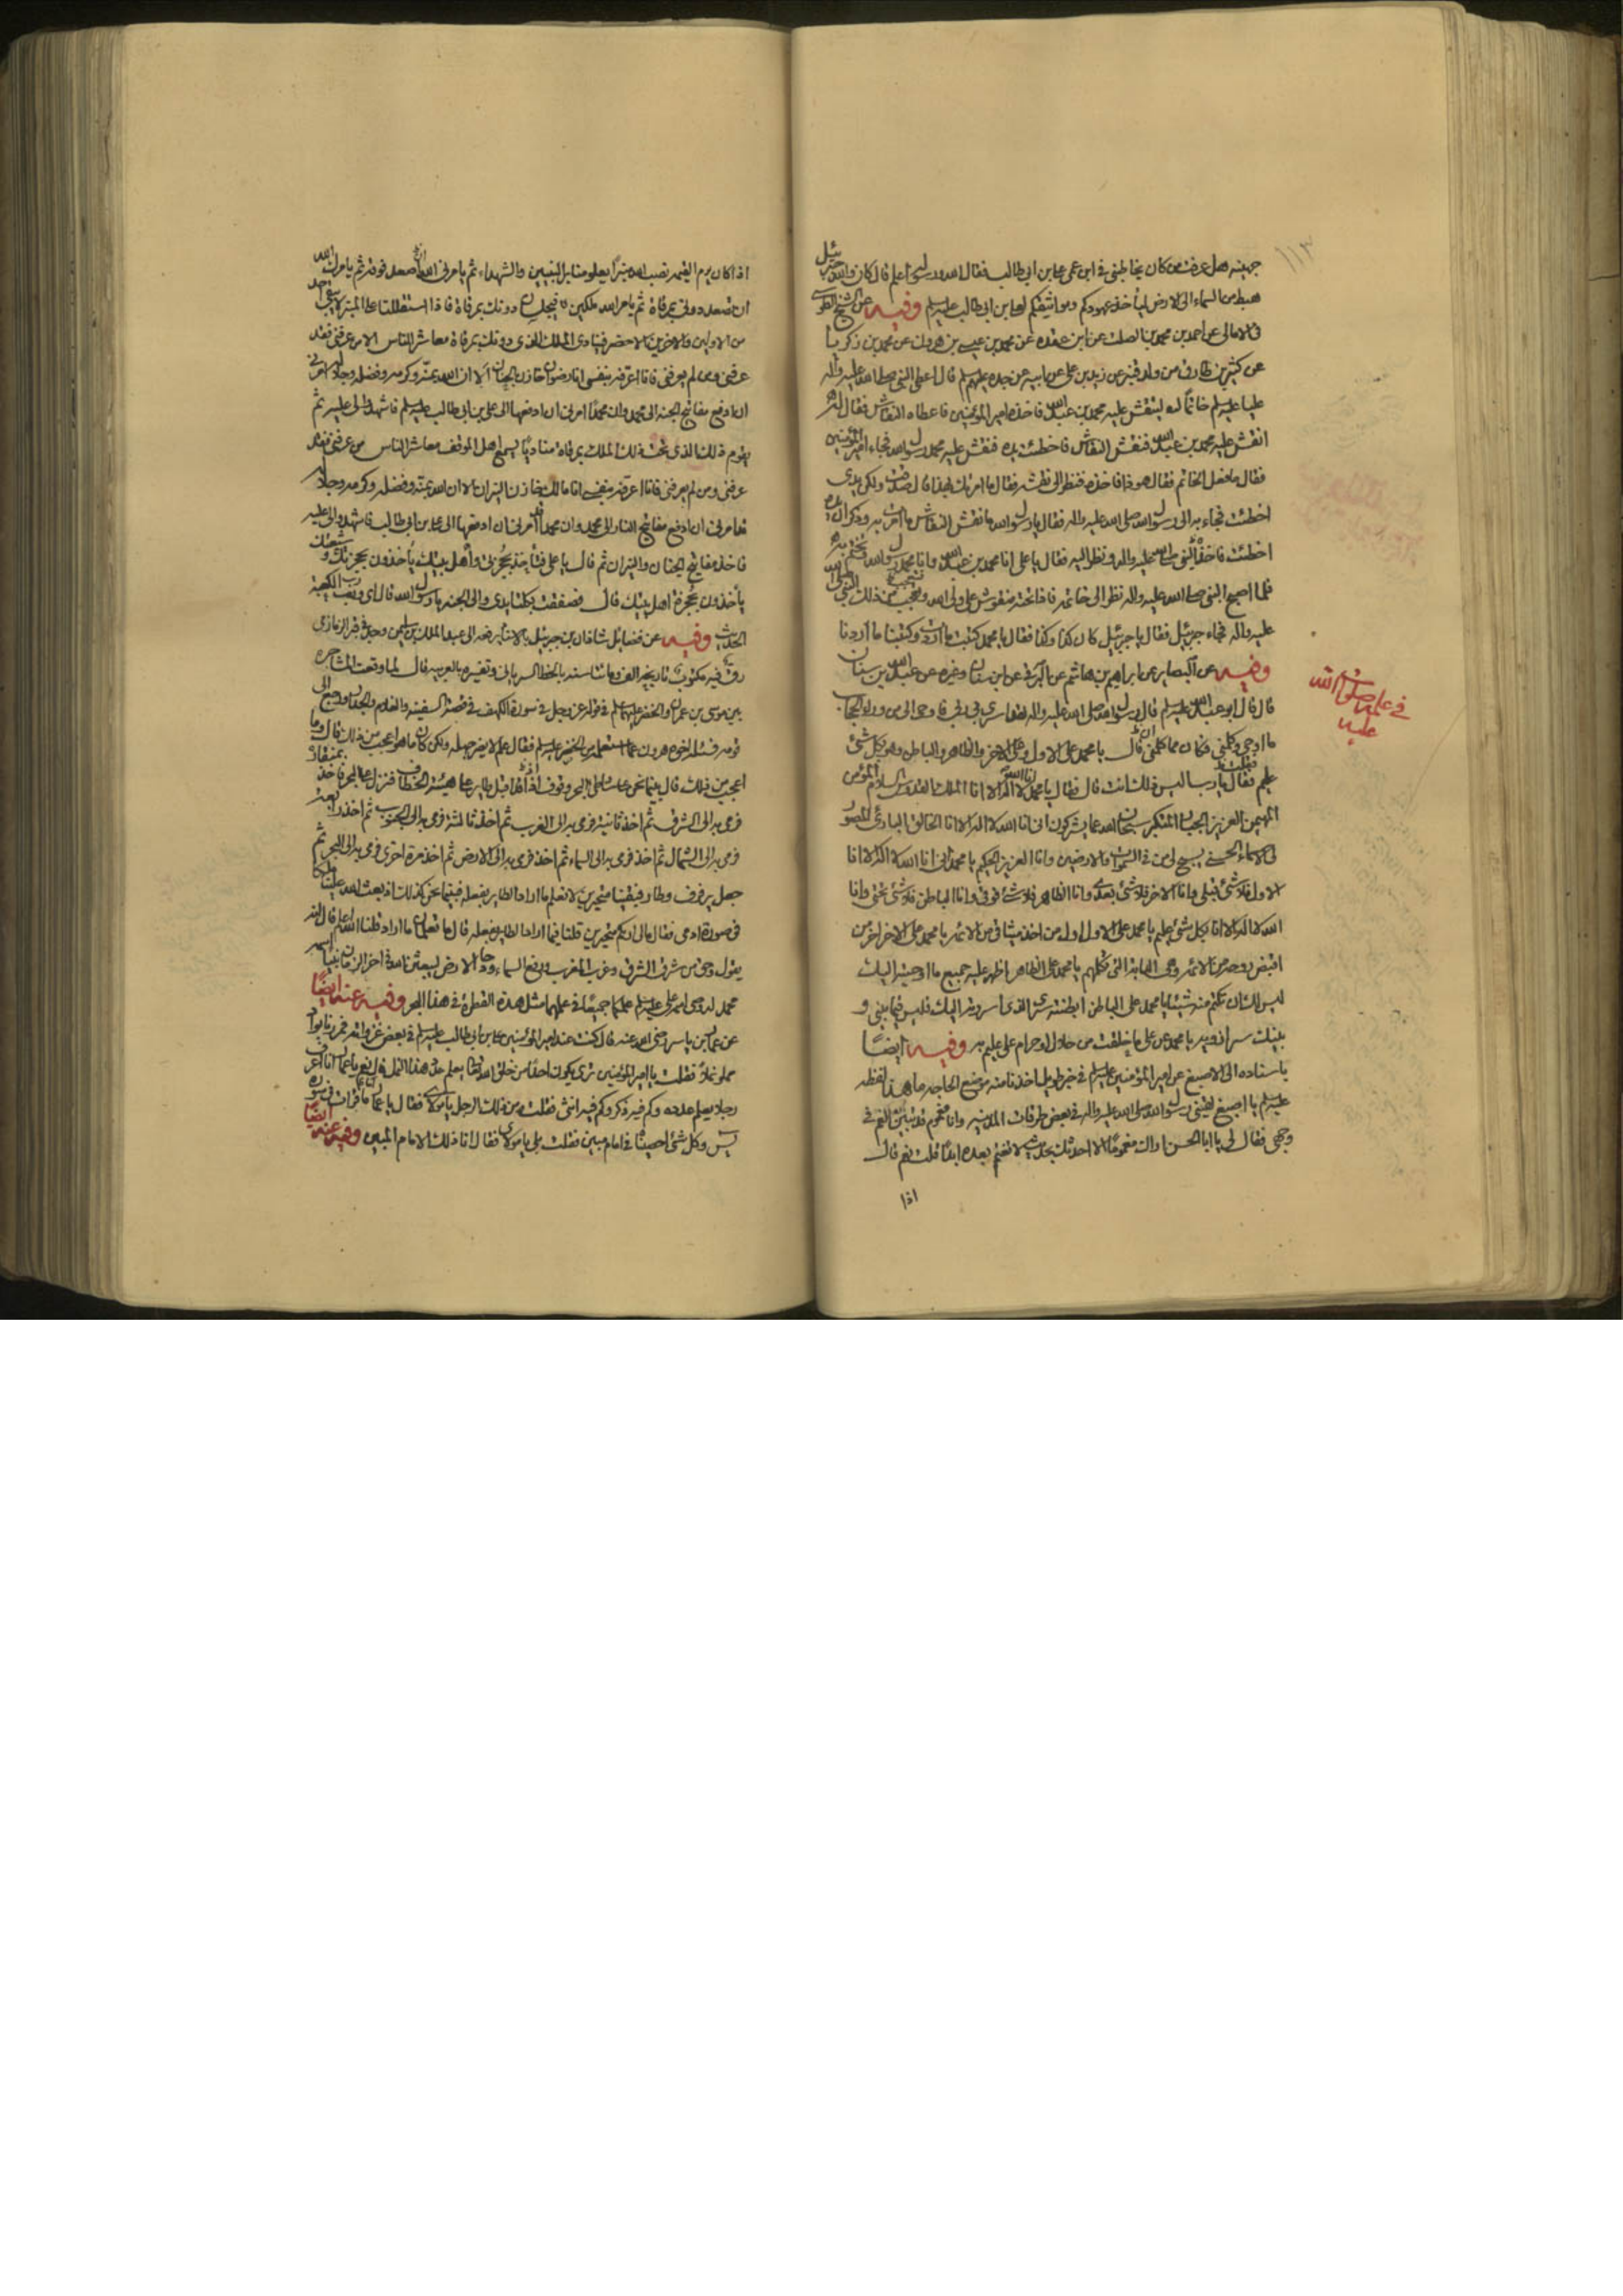 ١١٣
جهينه هل عرفت من كان يخاطبني في ابن عمي علي بن ابي طالب فقال الله ورسوله اعلم قال كان والله جبرئيل
هبط من السماء الى الارض ليأخذ عهودكم ومواثيقكم لعلي بن ابي طالب عليه السلم وفيه عن الشيخ الطوسي
في الامالي عن احمد بن محمد بن الصلت عن ابن عقده عن محمد بن عيسى بن هرون عن محمد بن زكريا
عن كثير بن طارق من ولد قنبر عن زيد بن علي عن ابيه عن جده عليهم السلم قال اعطى النبي صلى الله عليه واله
عليا عليه السلم خاتمًا له لينقش عليه محمد بن عبد الله فاخذه امير المؤمنين فاعطاه النقاش فقال له
انقش عليه محمد بن عبد الله فنقش النقاش فاخطئت يده فنقش عليه محمد رسول الله فجاء امير المؤمنين
فقال ما فعل الخاتم فقال هو ذا فاخذه فنظر الى نقشه فقال ما امرتك بهذا قال صدقت ولكن يدي
اخطئت فجاء به الى رسول الله صلى الله عليه واله فقال يا رسول الله ما نقش النقاش ما امرت به وذكر ان يده
اخطئت فاخذ النبي صلى الله عليه واله ونظر اليه فقال يا علي انا محمد بن عبد الله وانا محمد رسول الله وتختم به
فلما اصبح النبي صلى الله عليه واله نظر الى خاتمه فاذا تحته منقوش علي ولي الله فتعجب من ذلك النبي صلى الله
عليه واله فجاء جبرئيل فقال يا جبرئيل كان كذا وكذا فقال يا محمد كتبت ما اردت وكتبنا ما اردنا
وفيه عن البصاير عن ابراهيم بن هاشم عن البرقي عن ابن سنان وغيره عن عبد الله بن سنان
في علم علي صلوات الله عليه
قال قال ابو عبد الله عليه السلم قال رسول الله صلى الله عليه واله لقد اسرى بي ربي فاوحى الي من وراء الحجاب
ما اوحى وكلمني فكان مما كلمني ان قال يا محمد علي الاول وعلي الاخر والظاهر والباطن وهو بكل شئ
عليم فقال فقلت يا رب اليس ذلك انت قال فقال يا محمد انا الله لا اله الا انا الملك القدوس السلام المؤمن
المهيمن العزيز الجبار المتكبر سبحان الله عما يشركون اني انا الله لا اله الا انا الخالق البارئ المصور
لي الاسماء الحسنى يسبح لي من في السموات والارضين وانا العزيز الحكيم يا محمد اني انا الله لا اله الا انا
الاول فلا شئ قبلي وانا الاخر فلا شئ بعدي وانا الظاهر فلا شئ فوقي وانا الباطن فلا شئ تحتي وانا
الله لا اله الا انا بكل شئ عليم يا محمد علي الاول اول من اخذ ميثاقي من الائمه يا محمد علي الاخر اخر من
اقبض روحه من الائمه وهي الدابة التي تكلمهم يا محمد علي الظاهر اظهر عليه جميع ما اوحيته اليك
ليس لك ان تكتم منه شيئا يا محمد علي الباطن ابطنته سري الذي اسررته اليك فليس فيما بيني و
بينك سر ازويه يا محمد عن علي ما خلقت من حلال او حرام علي عليم به وفيه ايضًا
باسناده الى الاصبغ عن امير المؤمنين عليه السلم في خبر طويل اخذنا منه موضع الحاجه ما هذا لفظه
عليه السلم يا اصبغ لقيني رسول الله صلى الله عليه واله في بعض طرقات المدينه وانا مغموم قد تبين الغم في
وجهي فقال لي يا ابا الحسن اراك مغمومًا الا احدثك بحديث لا تغتم بعده ابدًا قلت نعم قال
اذا
اذا كان يوم القيمه نصب الله منبرًا يعلو منابر النبيين والشهداء ثم يأمرني الله ان اصعد فوقه ثم يامرك الله
ان تصعد دوني بمرقاة ثم يامر الله ملكين فيجلسان دونك بمرقاة فاذا استقللنا على المنبر لا يبقى احد
من الاولين والاخرين الا حضر فينادي الملك الذي دونك بمرقاة معاشر الناس الا من عرفني فقد
عرفني ومن لم يعرفني فانا اعرفه بنفسي انا رضوان خازن الجنان الا ان الله بمنه وكرمه وفضله وجلاله امرني
ان ادفع مفاتيح الجنة الى محمد وان محمدًا امرني ان ادفعها الى علي بن ابي طالب عليه السلم فاشهدوا لي عليه ثم
يقوم ذلك الذي تحت ذلك الملك بمرقاة مناديًا يسمع اهل الموقف معاشر الناس من عرفني فقد
عرفني ومن لم يعرفني فانا اعرفه بنفسي انا مالك خازن النيران الا ان الله بمنه وفضله وكرمه وجلاله
قد امرني ان ادفع مفاتيح النار الى محمد وان محمدًا قد امرني ان ادفعها الى علي بن ابي طالب فاشهدوا لي عليه
فاخذ مفاتيح الجنان والنيران ثم قال يا علي فتأخذ بحجزتي واهل بيتك يأخذون بحجزتك وشيعتك
يأخذون بحجزة اهل بيتك قال فصفقت بكلتا يدي والى الجنه يا رسول الله قال اي ورب الكعبة
الحديث وفيه عن فضايل شاذان بن جبرئيل بالاسناد يرفعه الى عبد الملك بن سليمن وجد في قبر الزماري
رق فيه مكتوب تاريخه الف ومائتا سنه بالخط السرياني وتفسيره بالعربيه قال لما وقعت المشاجره
بين موسى بن عمران والخضر عليهما السلم في قوله عز وجل في سورة الكهف في قصة السفينه والغلام والجدار ورجع الى
قومه فسئله اخوه هرون عما استعلمه من الخضر عليه السلم فقال علم لا يضر جهله ولكن كان ما هو اعجب من ذلك قال وما
اعجب من ذلك قال بينما نحن على شاطئ البحر وقوف اذ اقبل طاير على هيئة الخطاف فنزل على البحر فاخذ بمنقاره
فرمى به الى الشرق ثم اخذ ثانية فرمى به الى الغرب ثم اخذ ثالثة فرمى به الى الجنوب ثم اخذ رابعة
فرمى به الى الشمال ثم اخذ فرمى به الى السماء ثم اخذ فرمى به الى الارض ثم اخذ مرة اخرى فرمى به الى البحر ثم
جعل يرفرف وطار فبقينا متحيرين لا نعلم ما اراد الطاير بفعله فبينما نحن كذلك اذ بعث الله علينا ملكا
في صورة ادمي فقال مالي اراكم متحيرين قلنا فيما اراد الطاير بفعله قال ما تعلمان ما اراد قلنا الله اعلم قال انه
يقول وحق من شرق الشرق وغرب المغرب ورفع السماء ودحا الارض ليبعثن الله في اخر الزمان نبيا اسمه
محمد له وصي اسمه علي عليه السلم علمكما جميعًا في علمهما مثل هذه القطرة في هذا البحر وفيه عنه ايضًا
عن عمار بن ياسر رضي الله عنه قال كنت عند امير المؤمنين علي بن ابي طالب عليه السلم في بعض غزواته فمررنا بواد
مملو نملًا فقلت يا امير المؤمنين ترى يكون احدًا من خلق الله يعلم عدد هذا النمل قال نعم يا عمار انا اعرف
رجلا يعلم عدده وكم فيه ذكر وكم فيه انثى فقلت من ذلك الرجل يا مولاي فقال يا عمار اما قرات في سورة
يس وكل شئ احصيناه في امام مبين فقلت بلى يا مولاي فقال انا ذلك الامام المبين وفيه عنه ايضًا